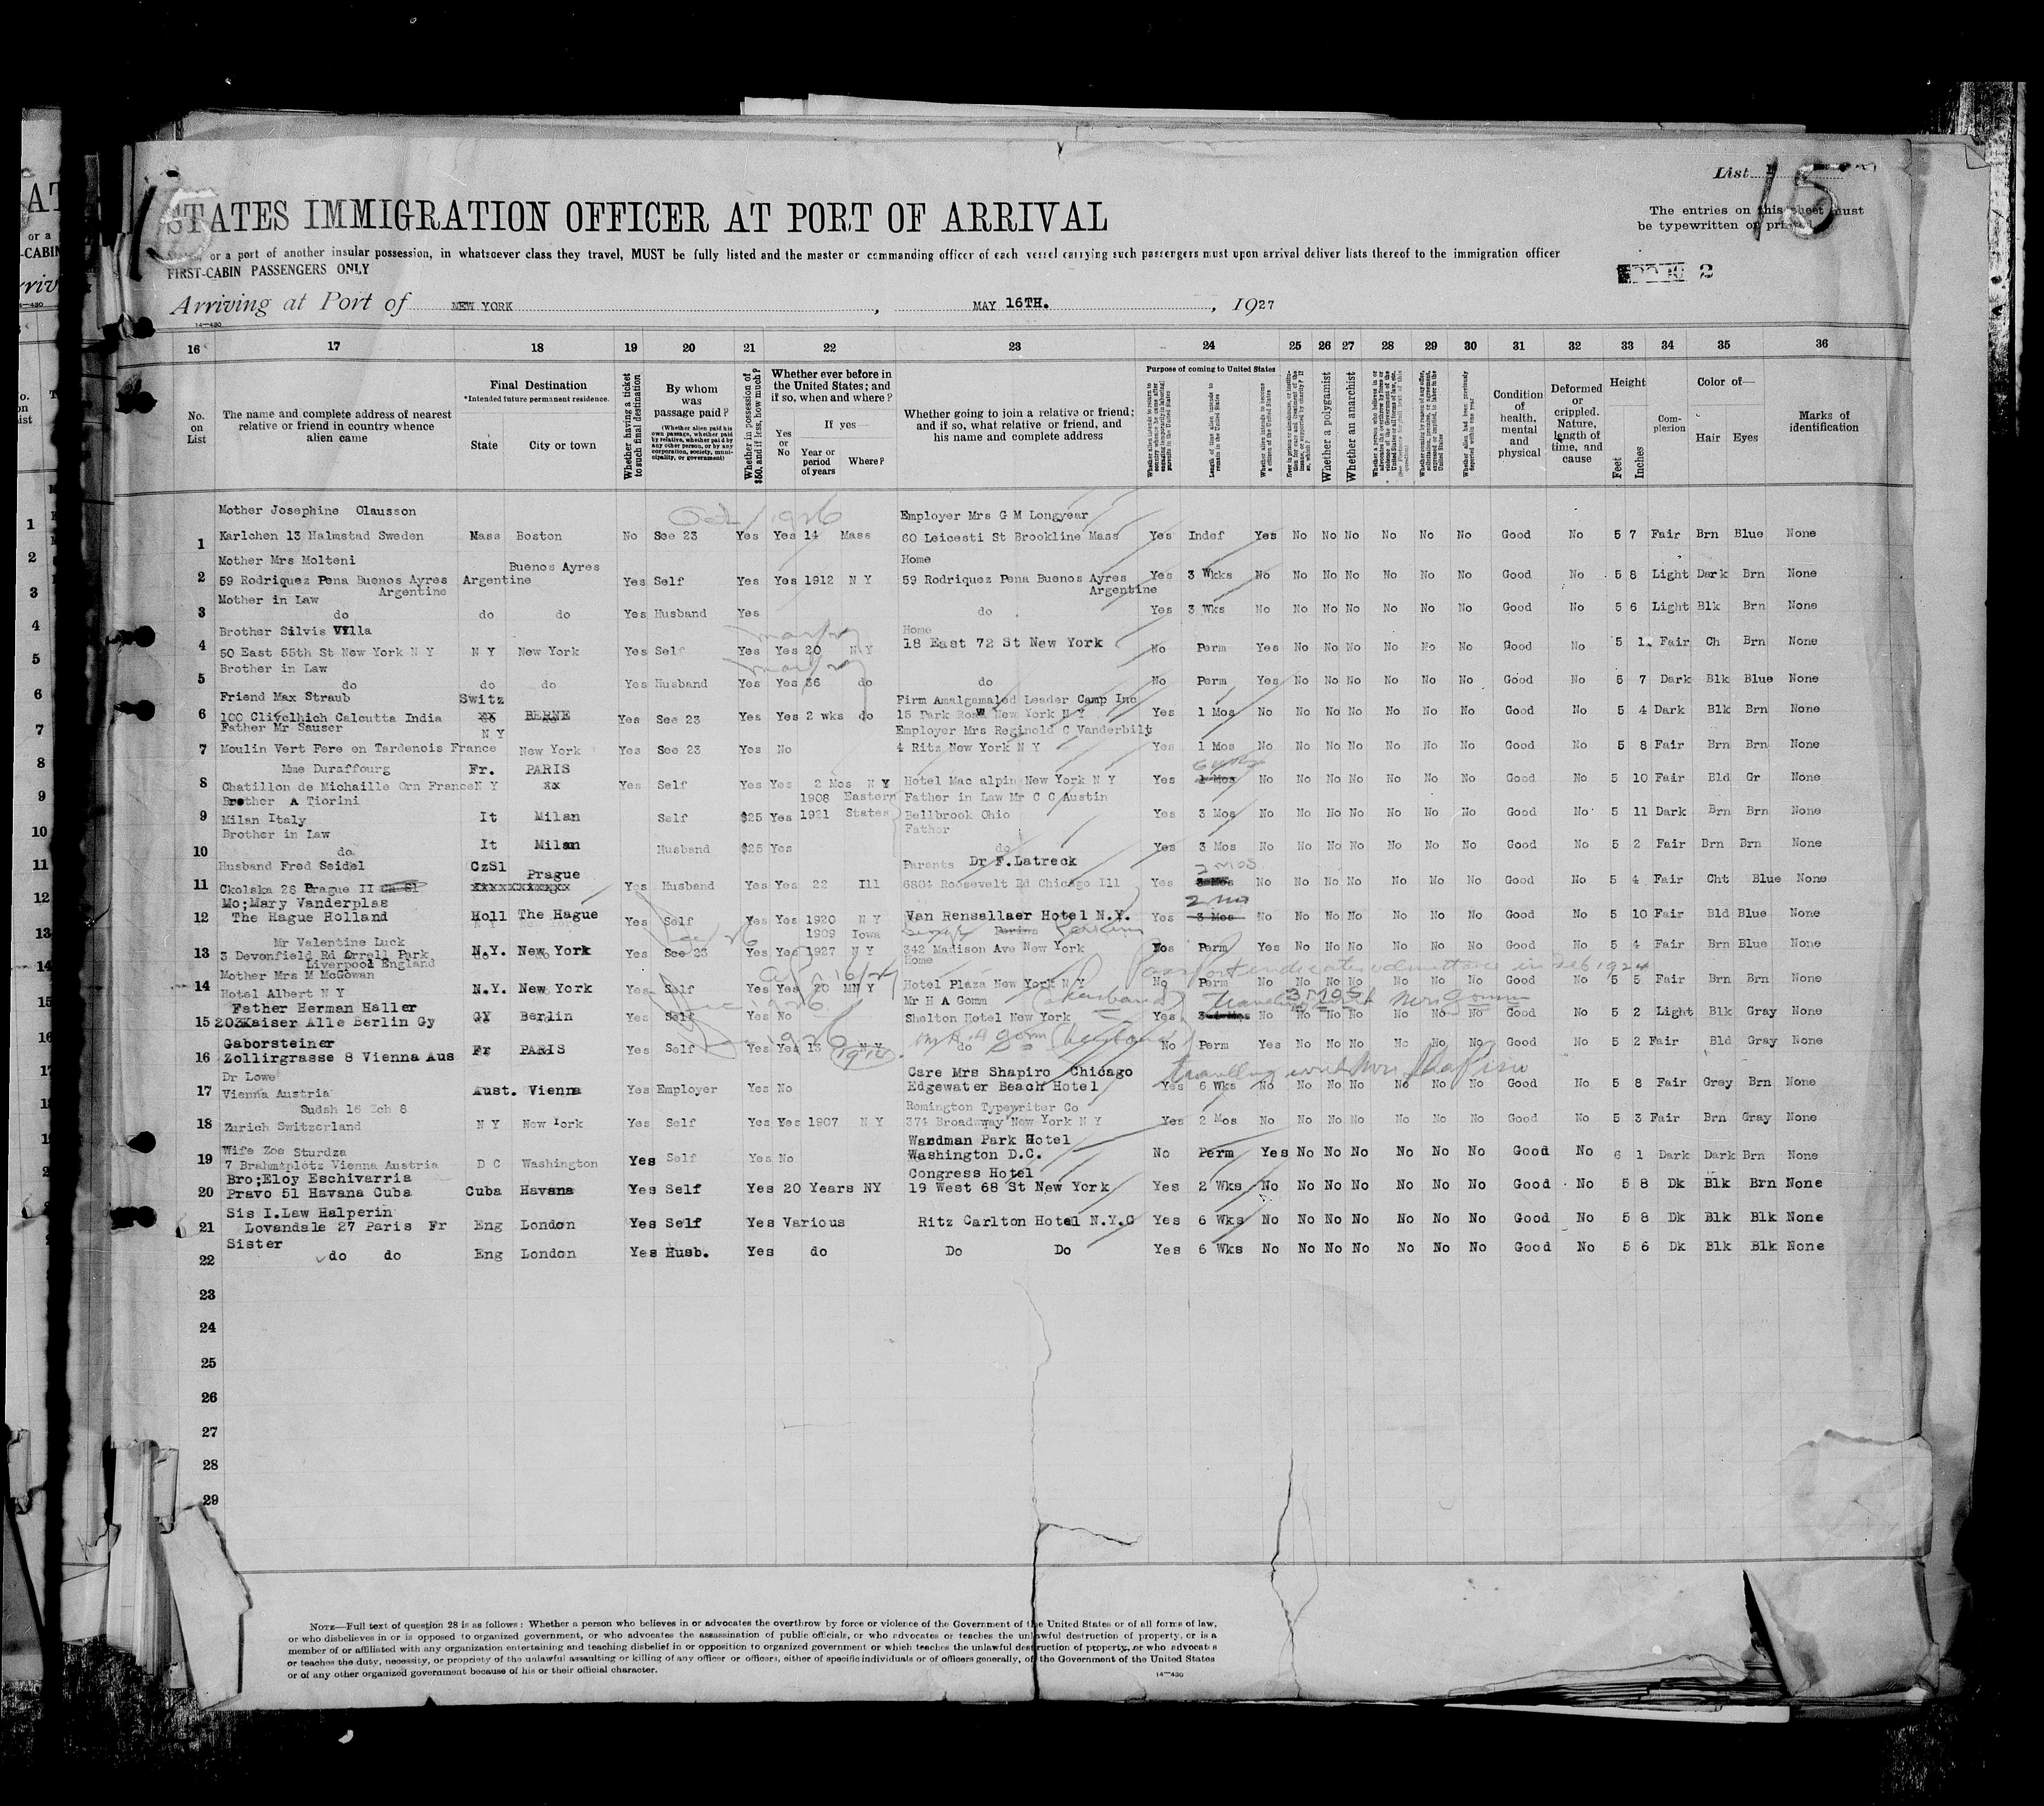 List
15
STATES IMMIGRATION OFFICER AT PORT OF ARRIVAL
The entries on this sheet must
be typewritten or
or a port of another insular possession, in whatsoever class they travel, MUST be fully listed and the master or commanding officer of each vessel carrying such passengers must upon arrival deliver lists thereof to the immigration officer
FIRST-CABIN PASSENGERS ONLY
2
Arriving at Port of NEW YORK , MAY 16TH. , 1927
14—430
16 17 18 19 20 21 22 23 24 25 26 27 28 29 30 31 32 33 34 35 36
No. on List
The name and complete address of nearest relative or friend in country whence alien came
Final Destination
*Intended future permanent residence.
State City or town
Whether having a ticket to such final destination
By whom was passage paid?
(Whether alien paid his own passage, whether paid by relative, whether paid by any other person, or by any corporation, society, municipality, or government)
Whether in possession of $50, and if less, how much?
Whether ever before in the United States; and if so, when and where?
Yes or No
If yes—
Year or period of years Where?
Whether going to join a relative or friend; and if so, what relative or friend, and his name and complete address
Purpose of coming to United States
Length of time alien intends to remain in the United States
Whether alien intends to become a citizen of the United States
Whether a polygamist
Whether an anarchist
Whether alien had been previously deported within one year
Condition of health, mental and physical
Deformed or crippled. Nature, length of time, and cause
Height
Feet Inches
Complexion
Color of—
Hair Eyes
Marks of identification
Oct / 1926
Mother Josephine Olausson Employer Mrs G M Longyear
1 Karlchen 13 Halmstad Sweden Mass Boston No See 23 Yes Yes 14 Mass 60 Leicesti St Brookline Mass Yes Indef Yes No No No No No No Good No 5 7 Fair Brn Blue None
Mother Mrs Molteni Buenos Ayres Home
2 59 Rodriquez Pena Buenos Ayres Argentine Yes Self Yes Yes 1912 N Y 59 Rodriquez Pena Buenos Ayres Yes 3 Wkks No No No No No No No Good No 5 8 Light Dark Brn None
Argentine Argentine
Mother in Law
3 do do do Yes Husband Yes do Yes 3 Wks No No No No No No No Good No 5 6 Light Blk Brn None
Brother Silvis Villa Home
4 50 East 55th St New York N Y N Y New York Yes Self Yes Yes 20 N Y 18 East 72 St New York No Perm Yes No No No No No No Good No 5 1 Fair Ch Brn None
Brother in Law
5 do do do Yes Husband Yes Yes 36 do do No Perm Yes No No No No No No Good No 5 7 Dark Blk Blue None
Friend Max Straub Switz Firm Amalgamaled Leader Camp Inc
6 100 Clivelhich Calcutta India BERNE Yes See 23 Yes Yes 2 wks do 15 Park Row New York N Y Yes 1 Mos No No No No No No No Good No 5 4 Dark Blk Brn None
Father Mr Sauser N Y Employer Mrs Reginold C Vanderbilt
7 Moulin Vert Fere en Tardenois France New York Yes See 23 Yes No 4 Ritz New York N Y Yes 1 Mos No No No No No No No Good No 5 8 Fair Brn Brn None
Mme Duraffourg Fr. PARIS
8 Chatillon de Michaille Orn France N Y xx Yes Self Yes Yes 2 Mos N Y Hotel Mac alpin New York N Y Yes 1 Mos No No No No No No No Good No 5 10 Fair Bld Gr None
Brother A Tiorini 1908 Eastern Father in Law Mr C C Austin
9 Milan Italy It Milan Self $25 Yes 1921 States Bellbrook Ohio Yes 3 Mos No No No No No No No Good No 5 11 Dark Brn Brn None
Brother in Law Father
10 do It Milan Husband $25 Yes do Yes 3 Mos No No No No No No No Good No 5 2 Fair Brn Brn None
Husband Fred Seidel CzSl Prague Parents Dr F.Latreck 2 mos
11 Ckolska 28 Prague II Cz Sl xxxxxxxxxxxx Yes Husband Yes Yes 22 Ill 6804 Roosevelt Rd Chicago Ill Yes 3 Mos No No No No No No No Good No 5 4 Fair Cht Blue None
Mo;Mary Vanderplas 2 mo
12 The Hague Holland Holl The Hague Yes Self Yes Yes 1920 N Y Van Rensellaer Hotel N.Y. Yes 3 Mos No No No No No No No Good No 5 10 Fair Bld Blue None
Mr Valentine Luck 1909 Iowa
13 3 Devonfield Rd Orrell Park N.Y. New York Yes See 23 Yes Yes 1927 N Y 342 Madison Ave New York No Perm Yes No No No No No No Good No 5 4 Fair Brn Blue None
Liverpool England Home
Mother Mrs M McGowan Apr 16/27 Passport indicates admittance in Feb 1924
14 Hotel Albert N Y N.Y. New York Yes Self Yes Yes 20 N Y Hotel Plaza New York N Y No Perm No No No No No No No Good No 5 5 Fair Brn Brn None
Father Herman Haller Mr H A Gomm (husband) Traveling with Mrs Gomm 3 MOS
15 203Kaiser Alle Berlin Gy GY Berlin Yes Self Yes No Shelton Hotel New York Yes No No No No No No No Good No 5 2 Light Blk Gray None
Gaborsteiner 1926 Mr H A Gom (husband)
16 Zollirgrasse 8 Vienna Aus Fr PARIS Yes Self Yes Yes 13 N Y (1914) do No Perm Yes No No No No No No Good No 5 2 Fair Bld Gray None
Dr Lowe Care Mrs Shapiro Chicago travelling with Mrs Shapiro
17 Vienna Austria Aust. Vienna Yes Employer Yes No Edgewater Beach Hotel Yes 6 Wks No No No No No No No Good No 5 8 Fair Grey Brn None
Sudsh 16 Zch 8 Remington Typewriter Co
18 Zurich Switzerland N Y New York Yes Self Yes Yes 1907 N Y 374 Broadway New York N Y Yes 2 Mos No No No No No No No Good No 5 3 Fair Brn Gray None
Wife Zoe Sturdza Wardman Park Hotel
19 7 Brahmsplotz Vienna Austria D C Washington Yes Self Yes No Washington D.C. No Perm Yes No No No No No No Good No 6 1 Dark Dark Brn None
Bro;Eloy Eschivarria Congress Hotel
20 Pravo 51 Havana Cuba Cuba Havana Yes Self Yes 20 Years NY 19 West 68 St New York Yes 2 Wks No No No No No No No Good No 5 8 Dk Blk Brn None
Sis I.Law Halperin
21 Lovandale 27 Paris Fr Eng London Yes Self Yes Various Ritz Carlton Hotel N.Y.C Yes 6 Wks No No No No No No No Good No 5 8 Dk Blk Blk None
Sister
22 do do Eng London Yes Husb. Yes do Do Do Yes 6 Wks No No No No No No No Good No 5 6 Dk Blk Blk None
23
24
25
26
27
28
29
NOTE—Full text of question 28 is as follows: Whether a person who believes in or advocates the overthrow by force or violence of the Government of the United States or of all forms of law,
or who disbelieves in or is opposed to organized government, or who advocates the assassination of public officials, or who advocates or teaches the unlawful destruction of property, or is a
member of or affiliated with any organization entertaining and teaching disbelief in or opposition to organized government or which teaches the unlawful destruction of property, or who advocates
or teaches the duty, necessity, or propriety of the unlawful assaulting or killing of any officer or officers, either of specific individuals or of officers generally, of the Government of the United States
or of any other organized government because of his or their official character.
14—430